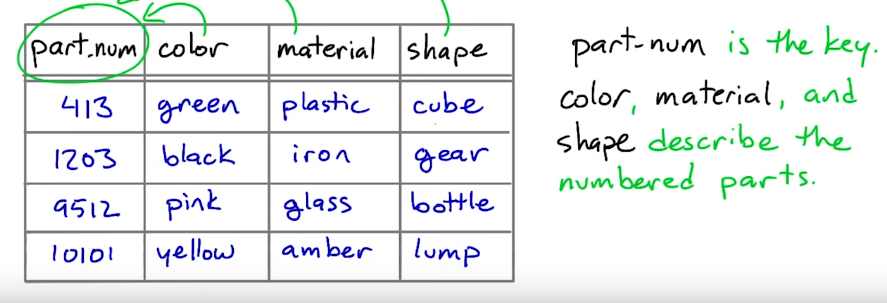 part-num color material shape
413 green plastic cube
1203 black iron gear
9512 pink glass bottle
10101 yellow amber lump
part-num is the key.
color, material, and
shape describe the
numbered parts.